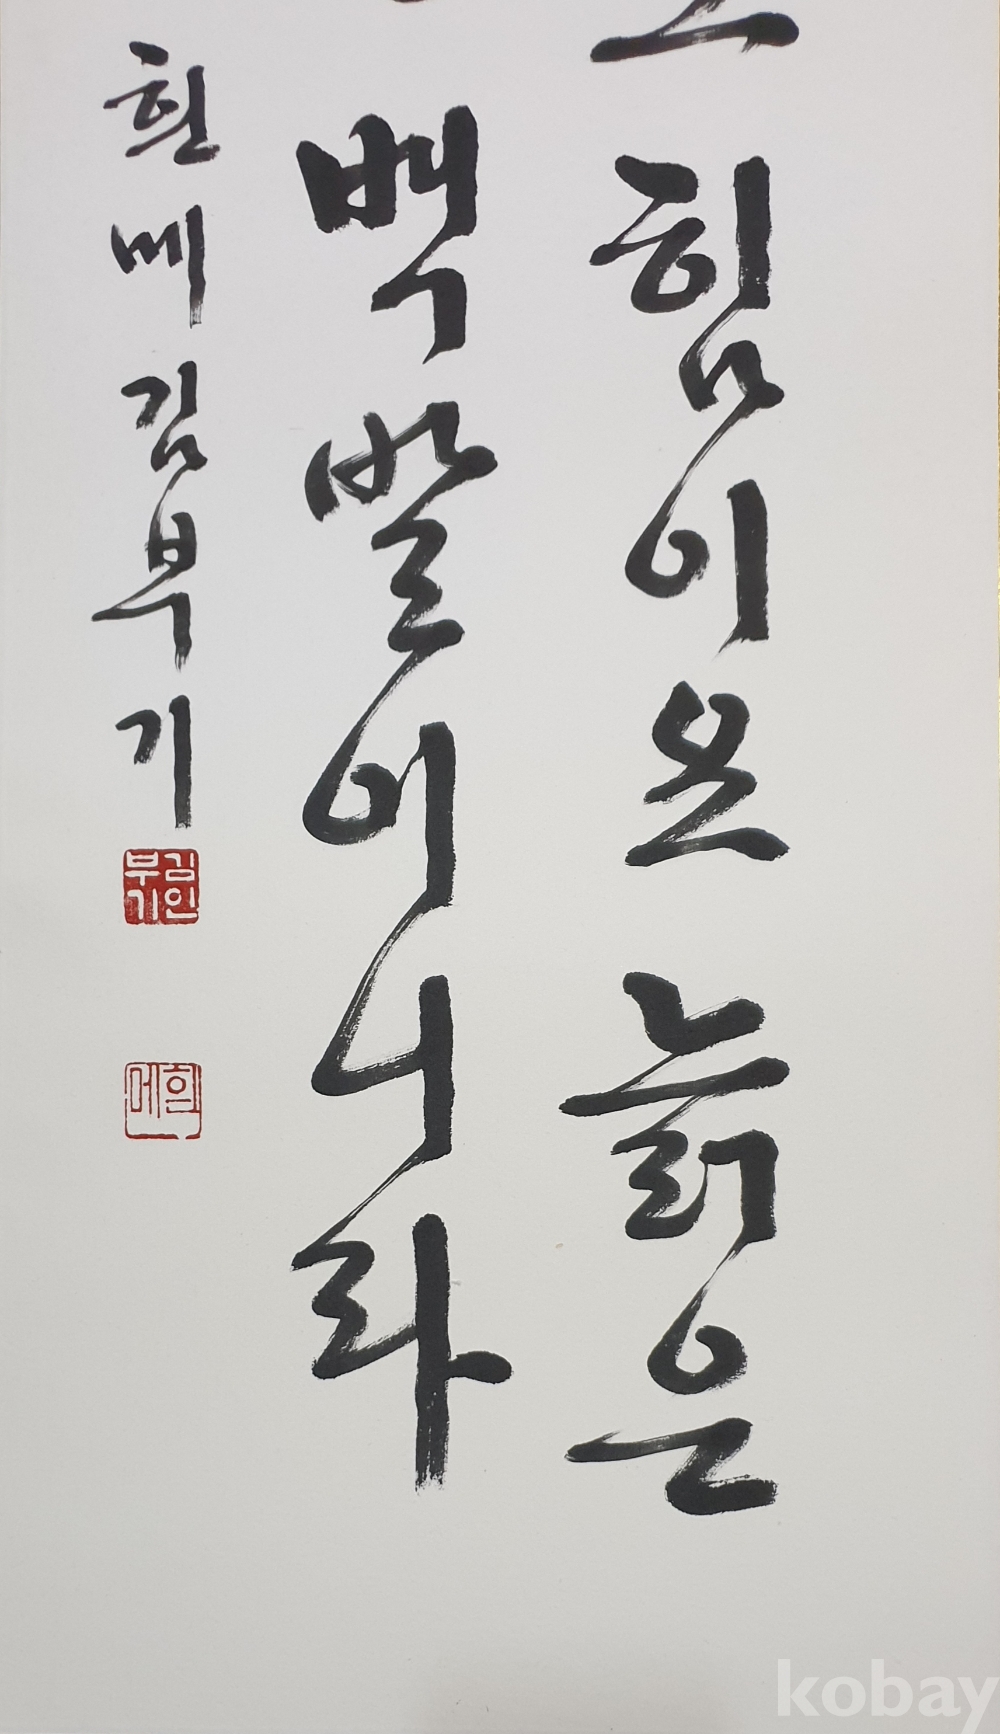 힘이요 늙은
백발이니라
흰메 김부기
김인부기
흰메
kobay